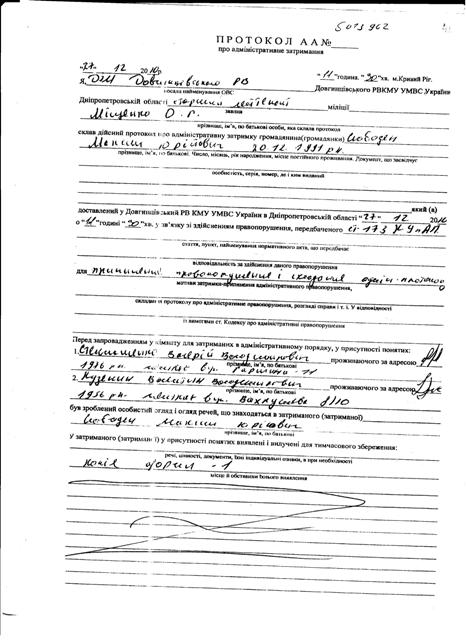 5013962
П Р О Т О К О Л А А №
про адміністративне затримання
"27" 12 2010р. "11"година. "30"хв. м.Кривий Ріг.
Я, ДІМ Довгинцівського РВ
посада найменування ОВС Довгинцівського РВКМУ УМВС України
Дніпропетровській області старшина міліції
звання
Міщенко О. Г.
прізвище, ім'я, по батькові особи, яка склала протокол
склав дійсний протокол про адміністративну затримку громадянина(громадянки)
Максим Юрійович 20.12.1991 р.н.
прізвище, ім'я, по батькові. Число, місяць, рік народження, місце постійного проживання. Документ, що засвідчує
особистість, серія, номер, де і ким виданий
який (а)
доставлений у Довгинцівський РВ КМУ УМВС України в Дніпропетровській області "27" 12 2010
о "11"годині "30"хв. у зв'язку зі здійсненням правопорушення, передбаченого ст 173 КУпАП
стаття, пункт, найменування нормативного акта, що передбачає
відповідальність за здійснення даного правопорушення
для припинення правопорушення і складання адмін. протоколу
мотиви затримки-припинення адміністративного правопорушення,
складання протоколу про адміністративне правопорушення, розгляді справи і т. і. У відповідності
із вимогами ст. Кодексу про адміністративні правопорушення
Перед запровадженням у кімнату для затриманих в адміністративному порядку, у присутності понятих:
1. Валерій Володимирович проживаючого за адресою
прізвище, ім'я, по батькові
1976 р.н. мешкає вул. Гагаріна 11
2. Володимирович проживаючого за адресою
прізвище, ім'я, по батькові
1956 р.н. мешкає вул.
був зроблений особистий огляд і огляд речей, що знаходяться в затриманого (затриманої)
Максим Юрійович
прізвище, ім'я, по батькові
У затриманого (затриманої) у присутності понятих виявлені і вилучені для тимчасового збереження:
речі, цінності, документи, їхні індивідуальні ознаки, а при необхідності
копія форми -1
місце й обставини їхнього виявлення